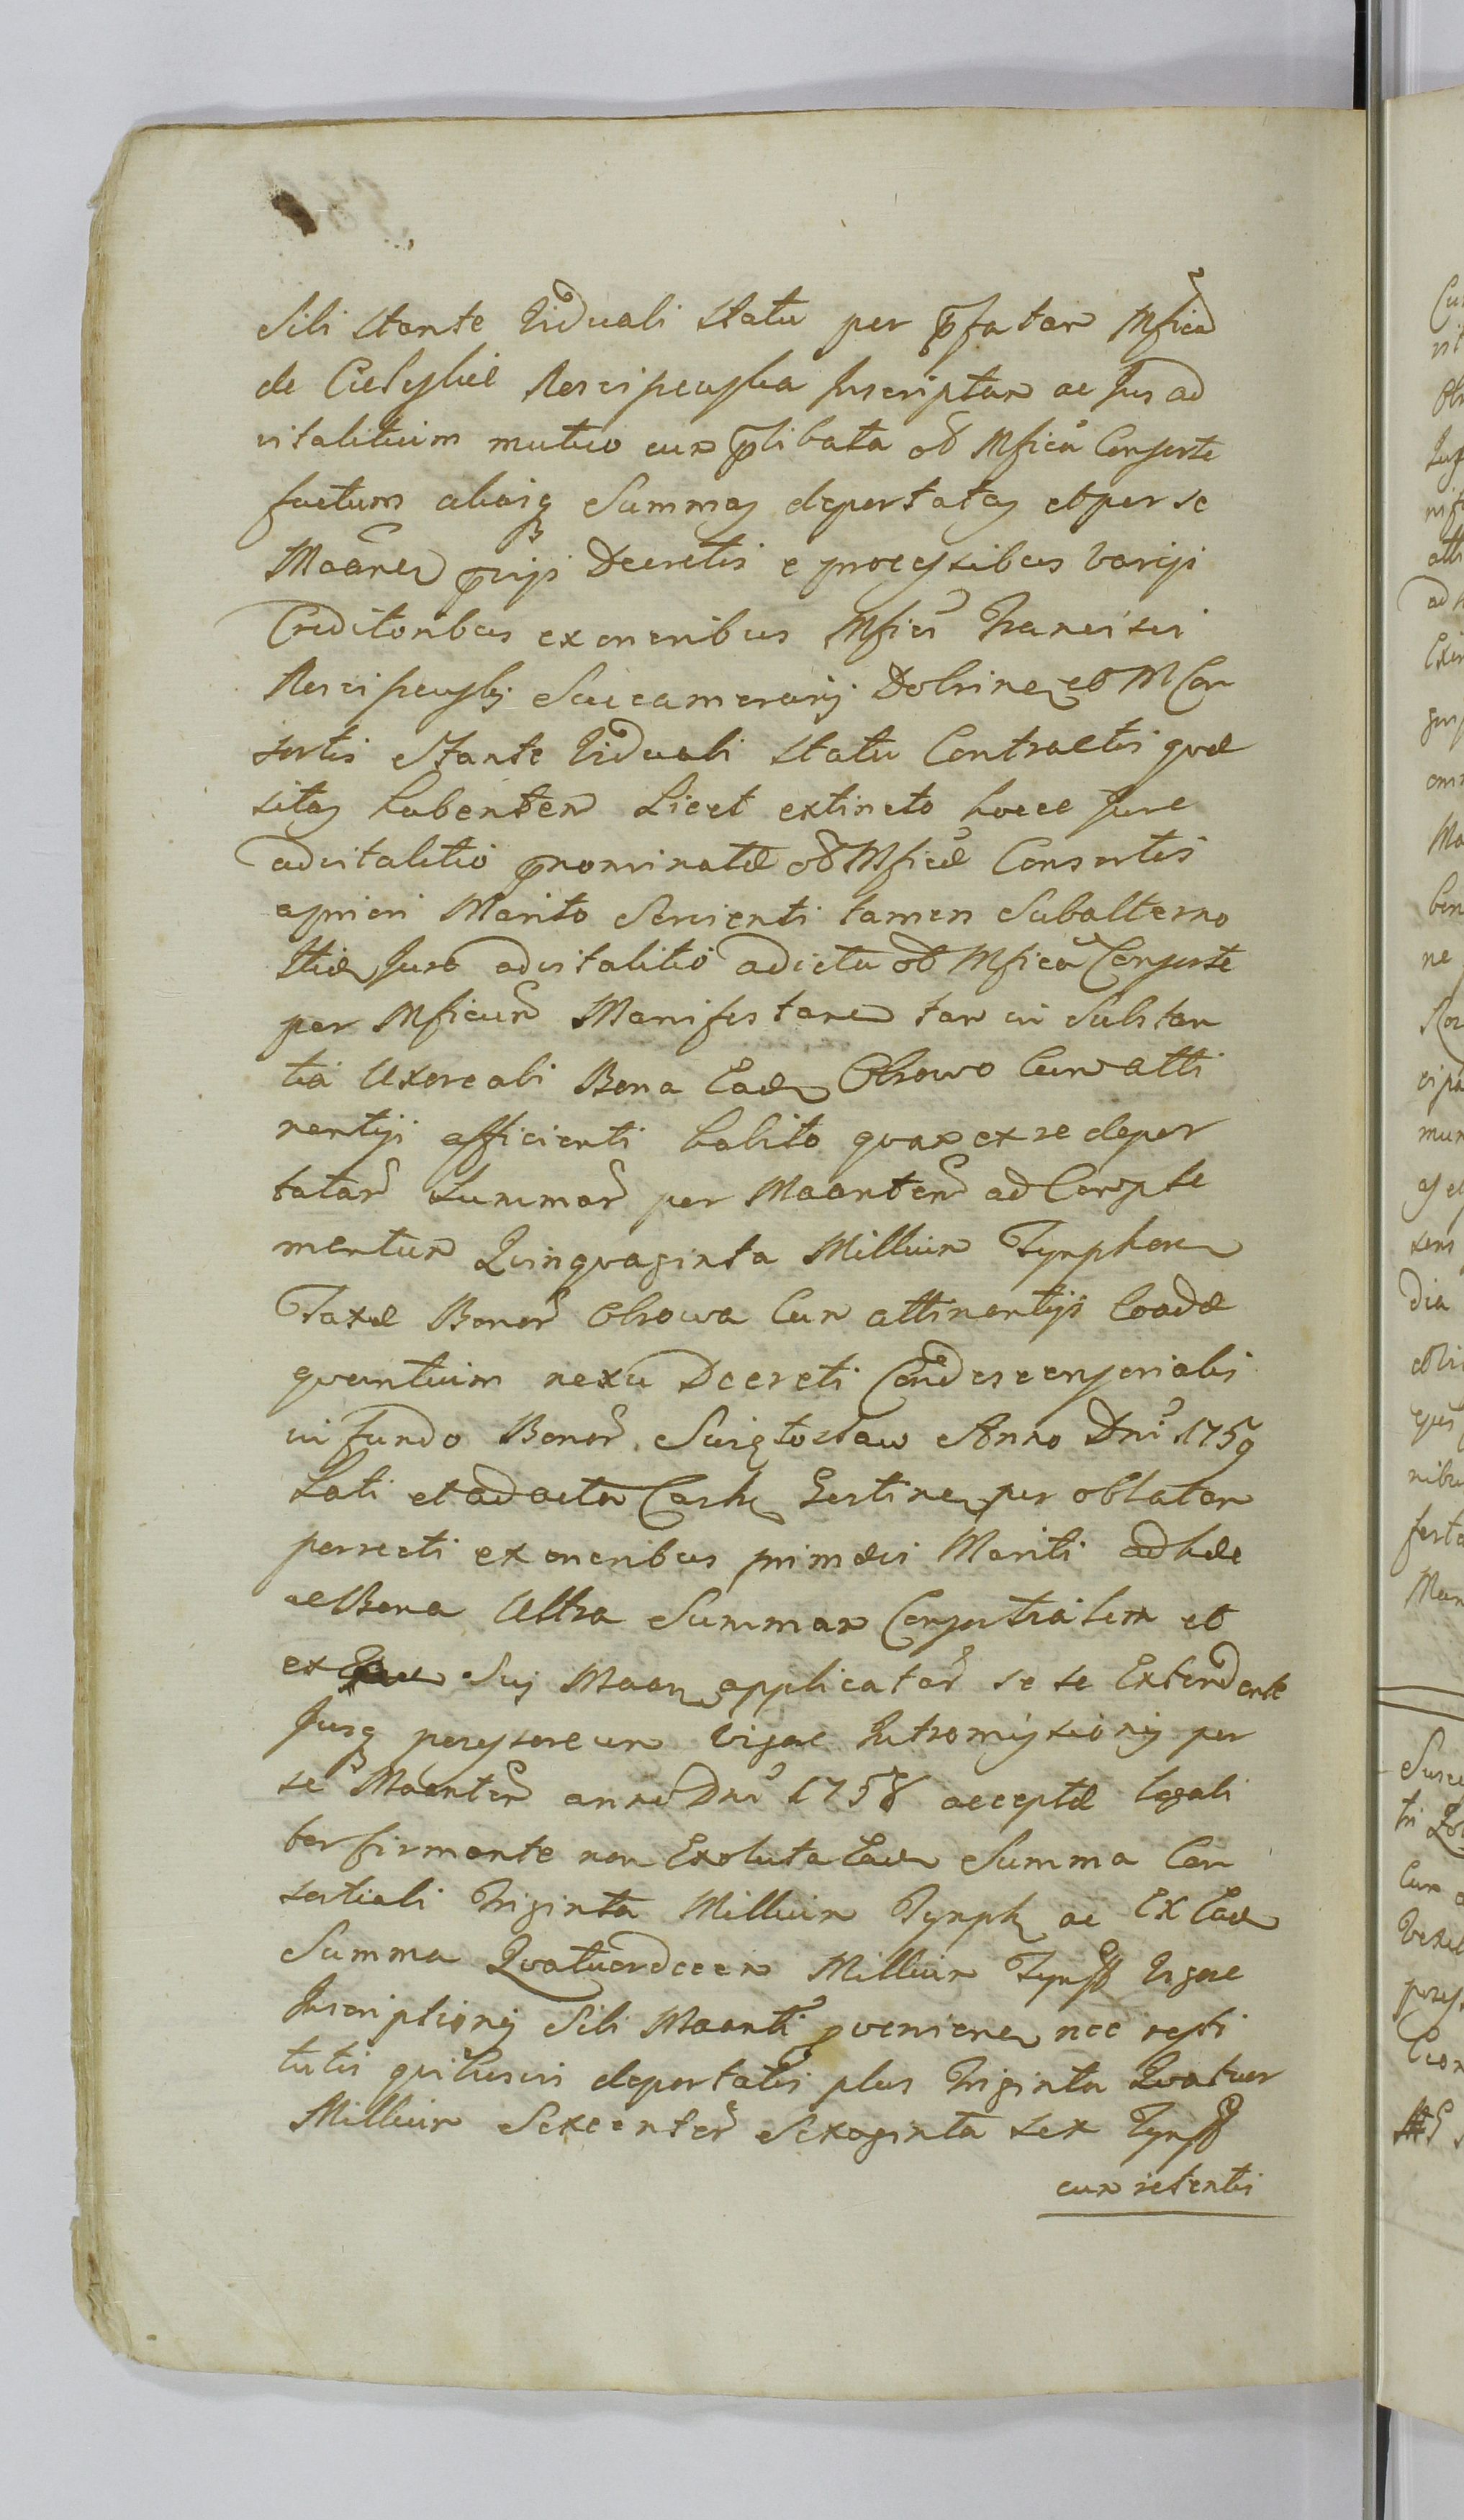 Sibi stante Viduali statu per p̄fatam Mficā
de Cielskie Rościszewska Inscriptam ac Jus ad
vitalitium mutuo cum p̄libata olī Mficā Consorte
factum aliasq Summas deportatas et per se
Maānem p̄vijs Decretis e processibus varijs
Creditoribus ex oneribus Mfici Francisci
Rościszewski Succamerarij Dobrinen et M Con
sortis Stante Viduali statu Contractis quæ
sitas habentem Licet extincto hocce Jure
advitalitio p̄nominatæ olī Mficæ Consortis
a priori Marito Servienti tamen Subalterno
Itid Jure advitalitio adicta olī Mficā Consorte
per Mficum Manifestanem tam in Substan
tia Uxoreali Bona Ead Obrowo Cum atti
nentijs afficienti habito quam ex re depor
tatar Summar per Maantem ad Comple
mentum Quinquaginta Millium Tymphon
Taxæ Bonor Obrowa Cum attinentijs Coadæ
quantium nexu Decreti Condescensorialis
in fundo Bonor Swiętosław Anno Dni 1759
Lati et ad acta Castr Bestinen per oblatam
porrecti ex oneribus primævi Mariti ad hæc
ac Bona Ultra Summam Consortialem et
ex Suj Maan applicator se se Extendente
Jusq possessoreum vigore Intromissionis per
se Maantem anno Dni 1758 acceptæ legali
ter firmante non Exoluta Ead Summa Con
sortiali Triginta Millium Tymph ac Ex Ead
Summa Quatuordecem Millium Tymff Vigore
Inscriptionis Sibi Maanti pvenienen nec resti
tutis quibusvis deportatis plus Triginta Quatuor
Millium Sexcentor Sexaginta sex Tymff
cum retentis